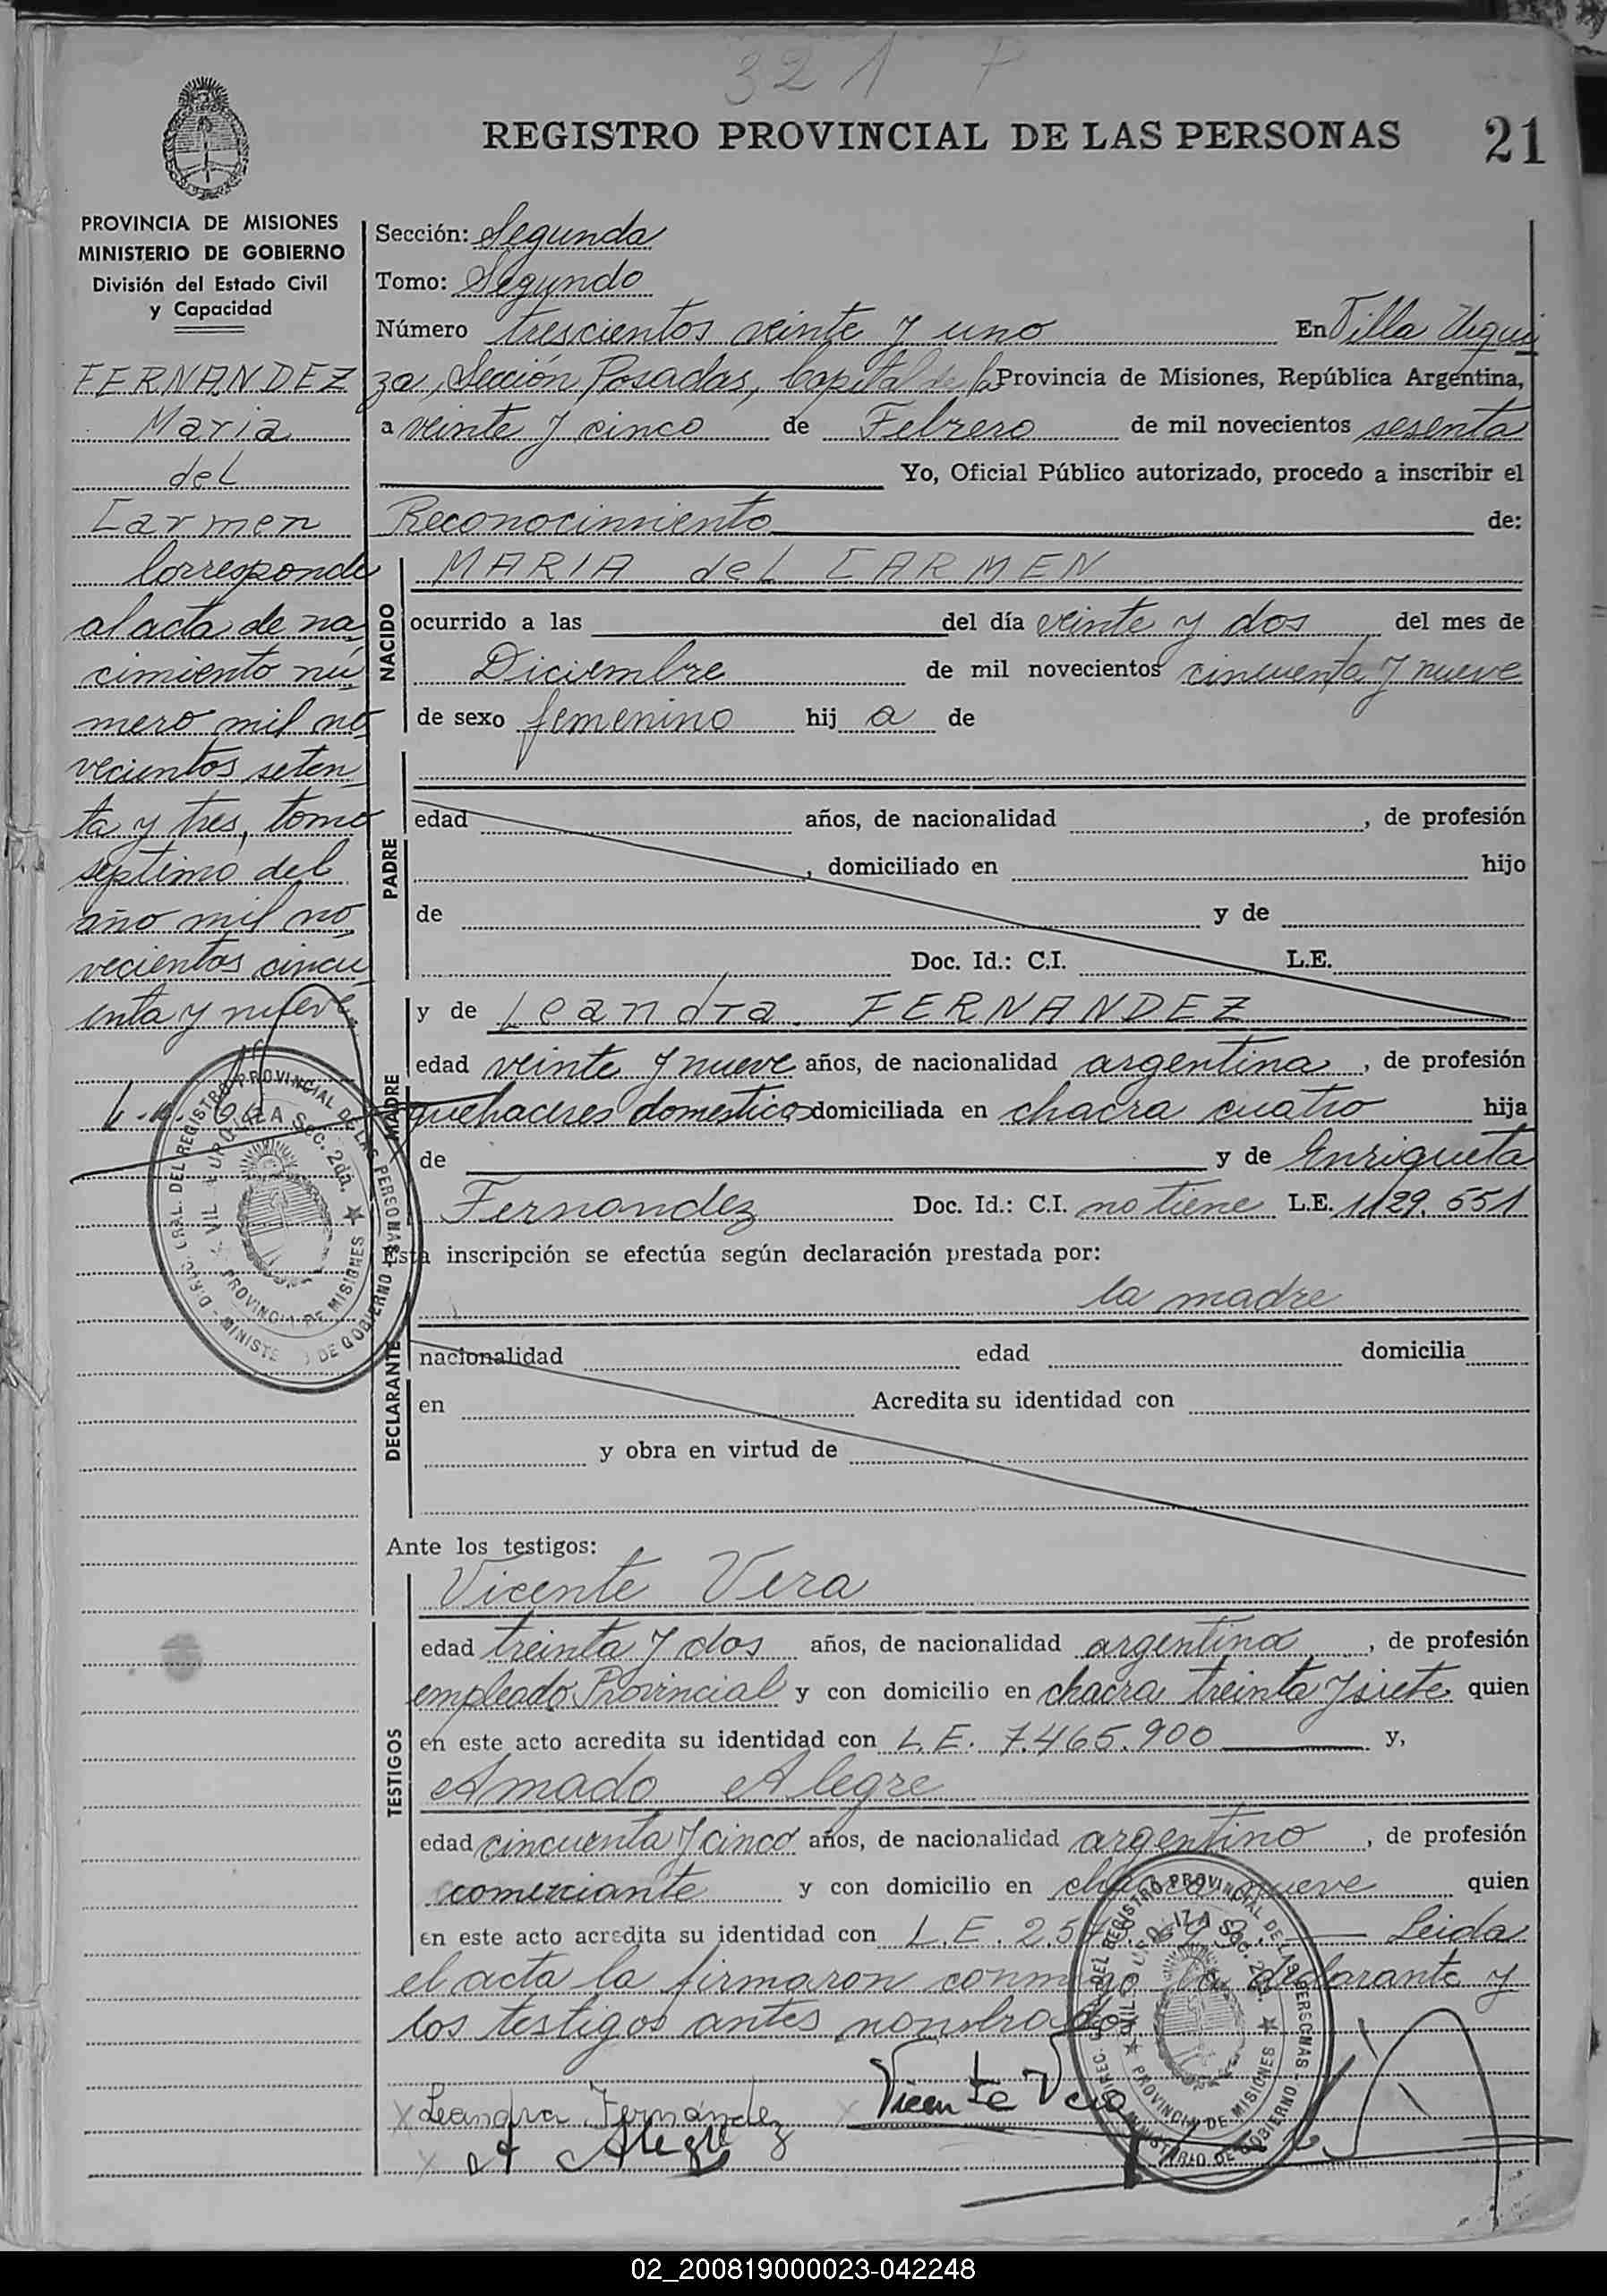 321 P
REGISTRO PROVINCIAL DE LAS PERSONAS 21
PROVINCIA DE MISIONES
MINISTERIO DE GOBIERNO
División del Estado Civil
y Capacidad
FERNANDEZ
Maria
del
Carmen
Corresponde
al acta de na
cimiento nú
mero mil no
vecientos seten
ta y tres, tomo
septimo del
año mil no
vecientos cincu
enta y nueve.
Sección: Segunda
Tomo: Segundo
Número trescientos veinte y uno En Villa Urqui
za, Sección Posadas, Capital de la Provincia de Misiones, República Argentina,
a veinte y cinco de Febrero de mil novecientos sesenta
Yo, Oficial Público autorizado, procedo a inscribir el
Reconocimiento de:
NACIDO
MARIA deL CARMEN
ocurrido a las del día veinte y dos del mes de
Diciembre de mil novecientos cincuenta y nueve
de sexo femenino hij a de
PADRE
edad años, de nacionalidad , de profesión
, domiciliado en hijo
de y de
Doc. Id.: C.I. L.E.
MADRE
y de Leandra FERNANDEZ
edad veinte y nueve años, de nacionalidad argentina, de profesión
quehaceres domesticos domiciliada en chacra cuatro hija
de y de Enriqueta
Fernandez Doc. Id.: C.I. no tiene L.E. 1129.551
Esta inscripción se efectúa según declaración prestada por:
la madre
DECLARANTE
nacionalidad edad domicilia
en Acredita su identidad con
y obra en virtud de
Ante los testigos:
TESTIGOS
Vicente Vera
edad treinta y dos años, de nacionalidad argentina, de profesión
empleado Provincial y con domicilio en chacra treinta y siete quien
en este acto acredita su identidad con L.E. 7.465.900 y,
Amado Alegre
edad cincuenta y cinco años, de nacionalidad argentino, de profesión
comerciante y con domicilio en chacra nueve quien
en este acto acredita su identidad con L.E. Leida
el acta la firmaron conmigo la declarante y
los testigos antes nombrados
Leandra Fernández Vicente Vera
A Alegre
DIREC. GRAL. DEL REGISTRO PROVINCIAL DE LAS PERSONAS
MINISTERIO DE GOBIERNO
PROVINCIA DE MISIONES
02_200819000023-042248